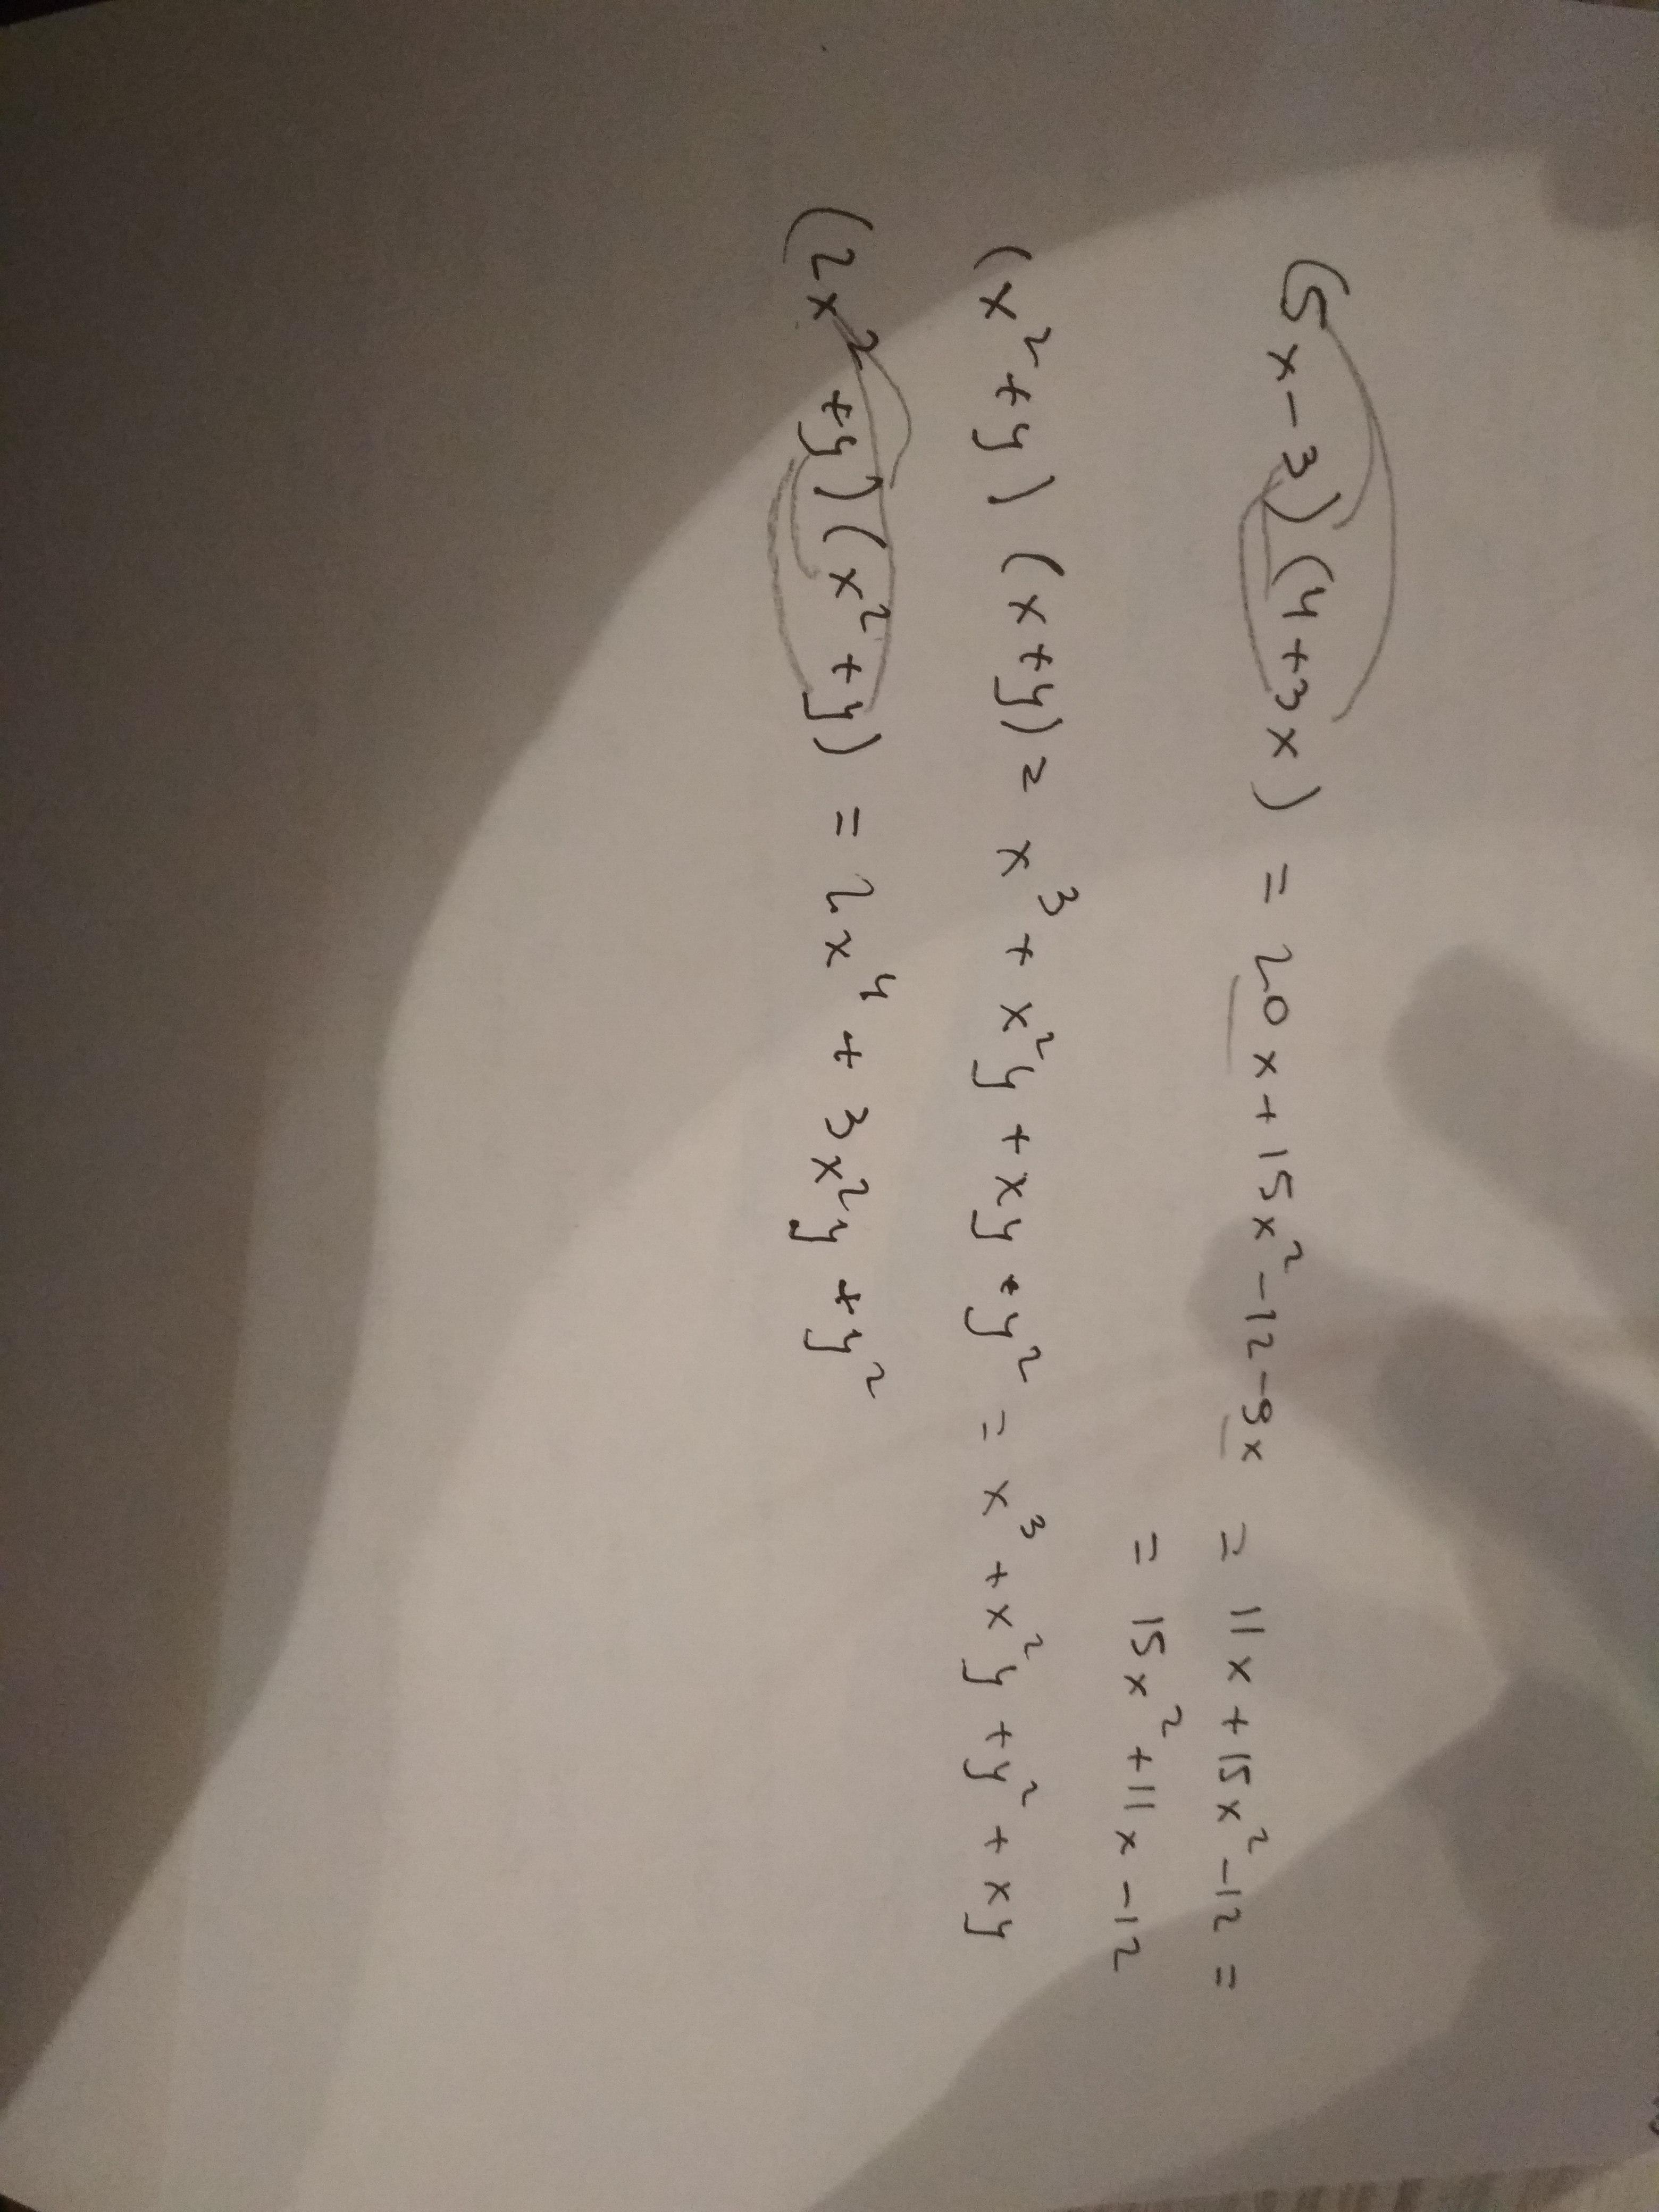 (5x-3)(4+3x) = 20x+15x²-12-9x = 11x+15x²-12 =
= 15x²+11x-12
(x²+y)(x+y) = x³+x²y+xy+y² = x³+x²y+y²+xy
(2x²+y)(x²+y) = 2x⁴+3x²y+y²